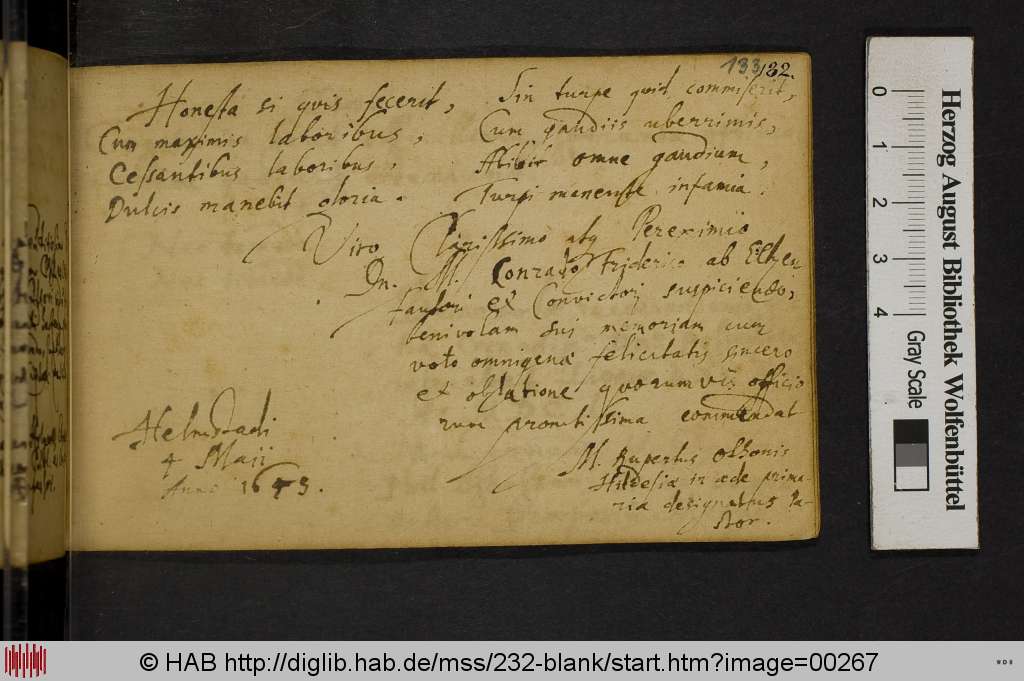 133 132.
Honesta si quis fecerit,
Cum maximis laboribus,
Cessantibus laboribus,
Dulcis manebit gloria.
Sin turpe quid commiserit,
Cum gaudiis uberrimis,
Abibit omne gaudium,
Turpi manente infamia.
Viro Clarissimo atq Pereximio
Dn. M. Conrado Friderico ab Eichen
fautori et Convictori suspiciendo,
benivolam sui memoriam cum
voto omnigenæ felicitatis sincero
et oblatione quorumvis officio
rum promtissima commendat
M. Rupertus Othonis
Hildesiæ in æde prima
ria designatus Pa-
stor.
Helmstadi
4 Maii
Anni 1643.
0 1 2 3 4
Gray Scale
Herzog August Bibliothek Wolfenbüttel
© HAB http://diglib.hab.de/mss/232-blank/start.htm?image=00267